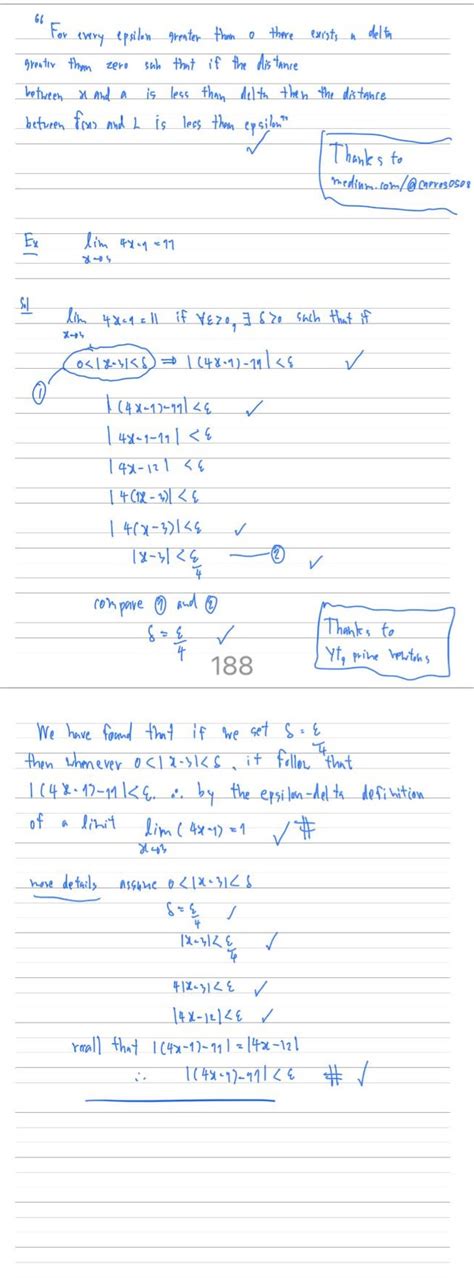 " For every epsilon greater than 0 there exists a delta
greater than zero such that if the distance
between x and a is less than delta then the distance
between f(x) and L is less than epsilon"
✓
Thanks to
medium.com/@
Ex lim 4x-1 = 11
x→3
Sol lim 4x-1 = 11 if ∀ε>0, ∃ δ>0 such that if
x→3
0<|x-3|<δ ⇒ |(4x-1)-11|<ε ✓
①
|(4x-1)-11|<ε ✓
|4x-1-11|<ε
|4x-12|<ε
|4(x-3)|<ε
|4(x-3)|<ε ✓
|x-3|<ε/4 — ② ✓
compare ① and ②
δ = ε/4 ✓
Thanks to
Yt, prime newtons
188
We have found that if we set δ = ε/4
then whenever 0<|x-3|<δ, it follow that
|(4x-1)-11|<ε. ∴ by the epsilon-delta definition
of a limit lim (4x-1) = 1 ✓ #
x→3
more details assume 0<|x-3|<δ
δ = ε/4 ✓
|x-3|<ε/4 ✓
4|x-3|<ε ✓
|4x-12|<ε ✓
recall that |(4x-1)-11| = |4x-12|
∴ |(4x-1)-11|<ε # ✓